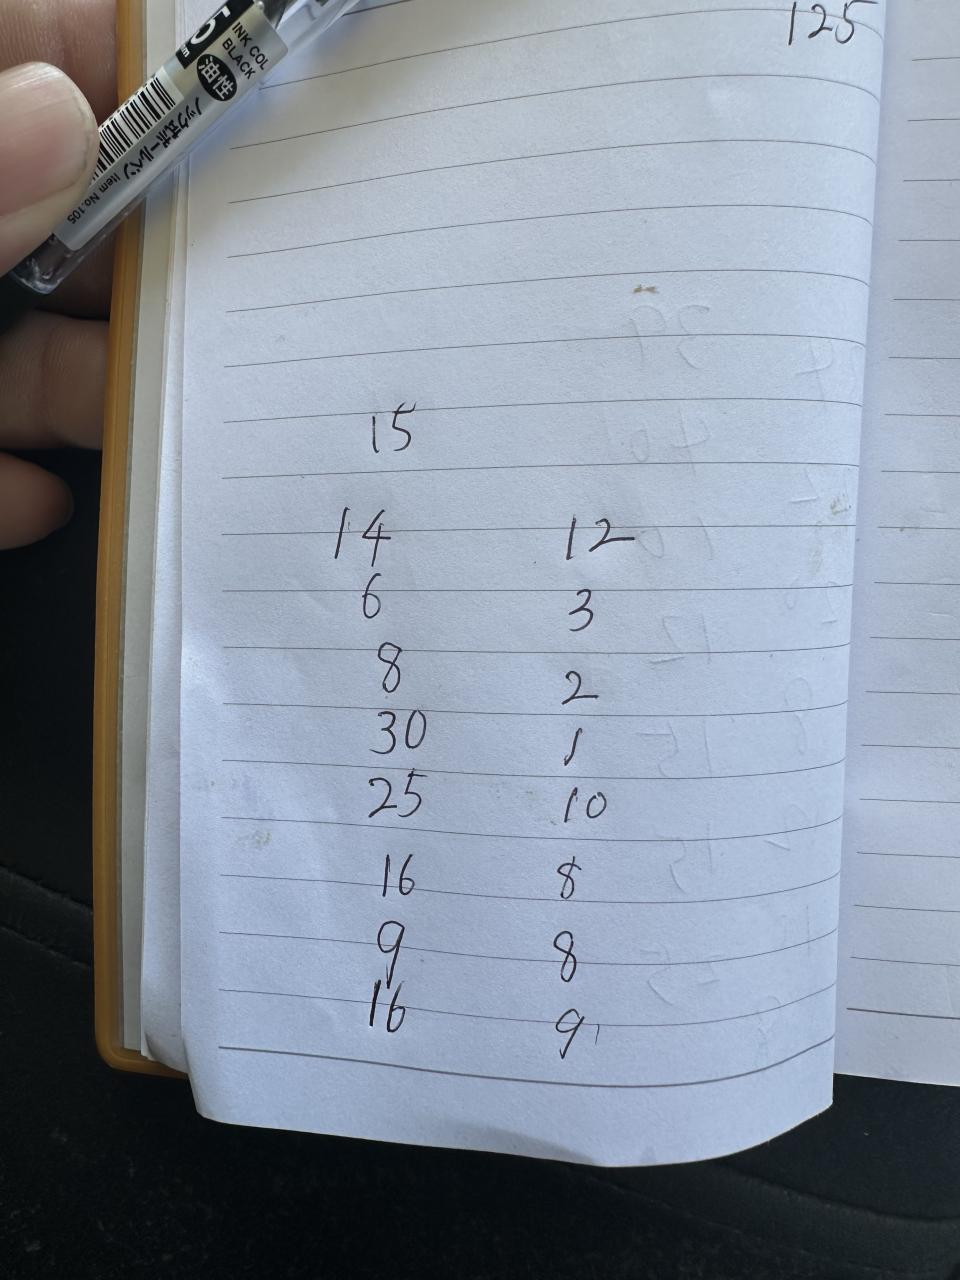 125
5
INK COL
BLACK
油性
ノック式ボールペン Item No.105
15
14 12
6 3
8 2
30 1
25 10
16 8
9 8
16 9